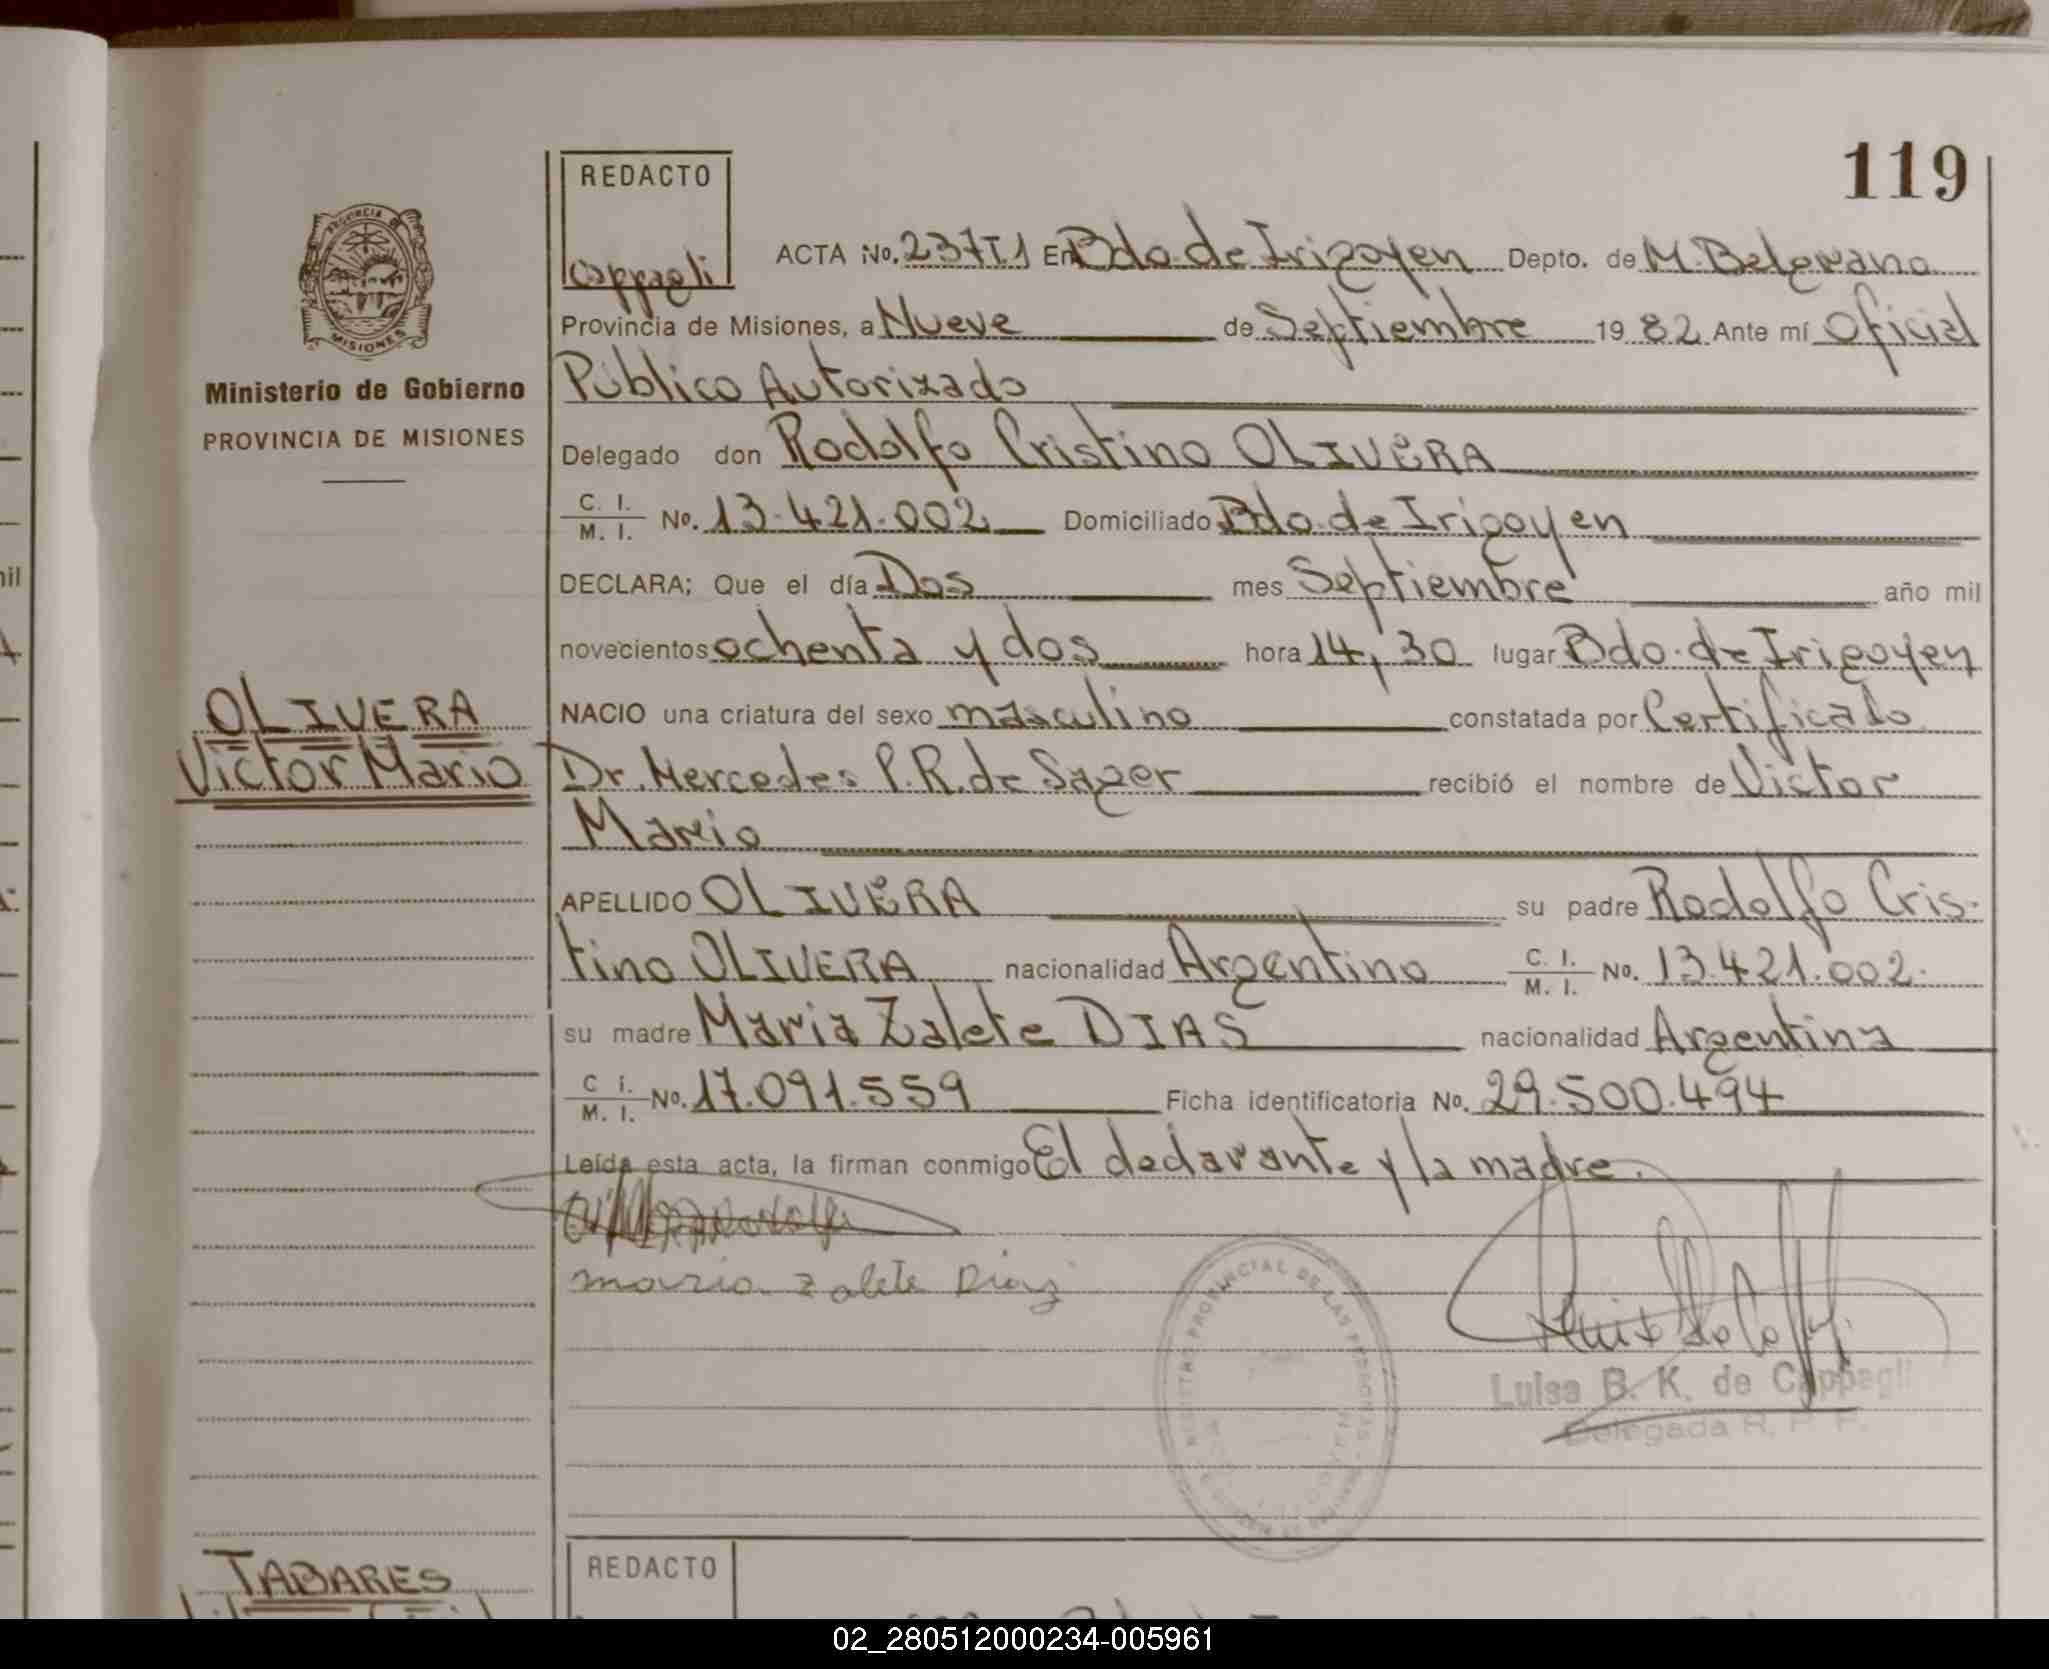 119
REDACTO
Cappagli
PROVINCIA DE
MISIONES
Ministerio de Gobierno
PROVINCIA DE MISIONES
ACTA No. 237T1 En Bdo. de Irigoyen Depto. de M. Belgrano
Provincia de Misiones, a Nueve de Septiembre 19 82 Ante mí Oficial
Público Autorizado
Delegado don Rodolfo Cristino OLIVERA
C. I. / M. I. No. 13.421.002 Domiciliado Bdo. de Irigoyen
DECLARA; Que el día Dos mes Septiembre año mil
novecientos ochenta y dos hora 14,30 lugar Bdo. de Irigoyen
OLIVERA
Victor Mario
NACIO una criatura del sexo masculino constatada por Certificado
Dr. Mercedes P.R. de Sazer recibió el nombre de Victor
Mario
APELLIDO OLIVERA su padre Rodolfo Cris-
tino OLIVERA nacionalidad Argentino C. I. / M. I. No. 13.421.002.
su madre Maria Zalete DIAS nacionalidad Argentina
C. I. / M. I. No. 17.091.559 Ficha identificatoria No. 29.500.494
Leída esta acta, la firman conmigo El declarante y la madre.
Rodolfo
maria Zalete Diaz
REGISTRO PROVINCIAL DE LAS PERSONAS
Luisa B. K. de Cappagli
Delegada R. P. P.
TABARES
REDACTO
02_280512000234-005961